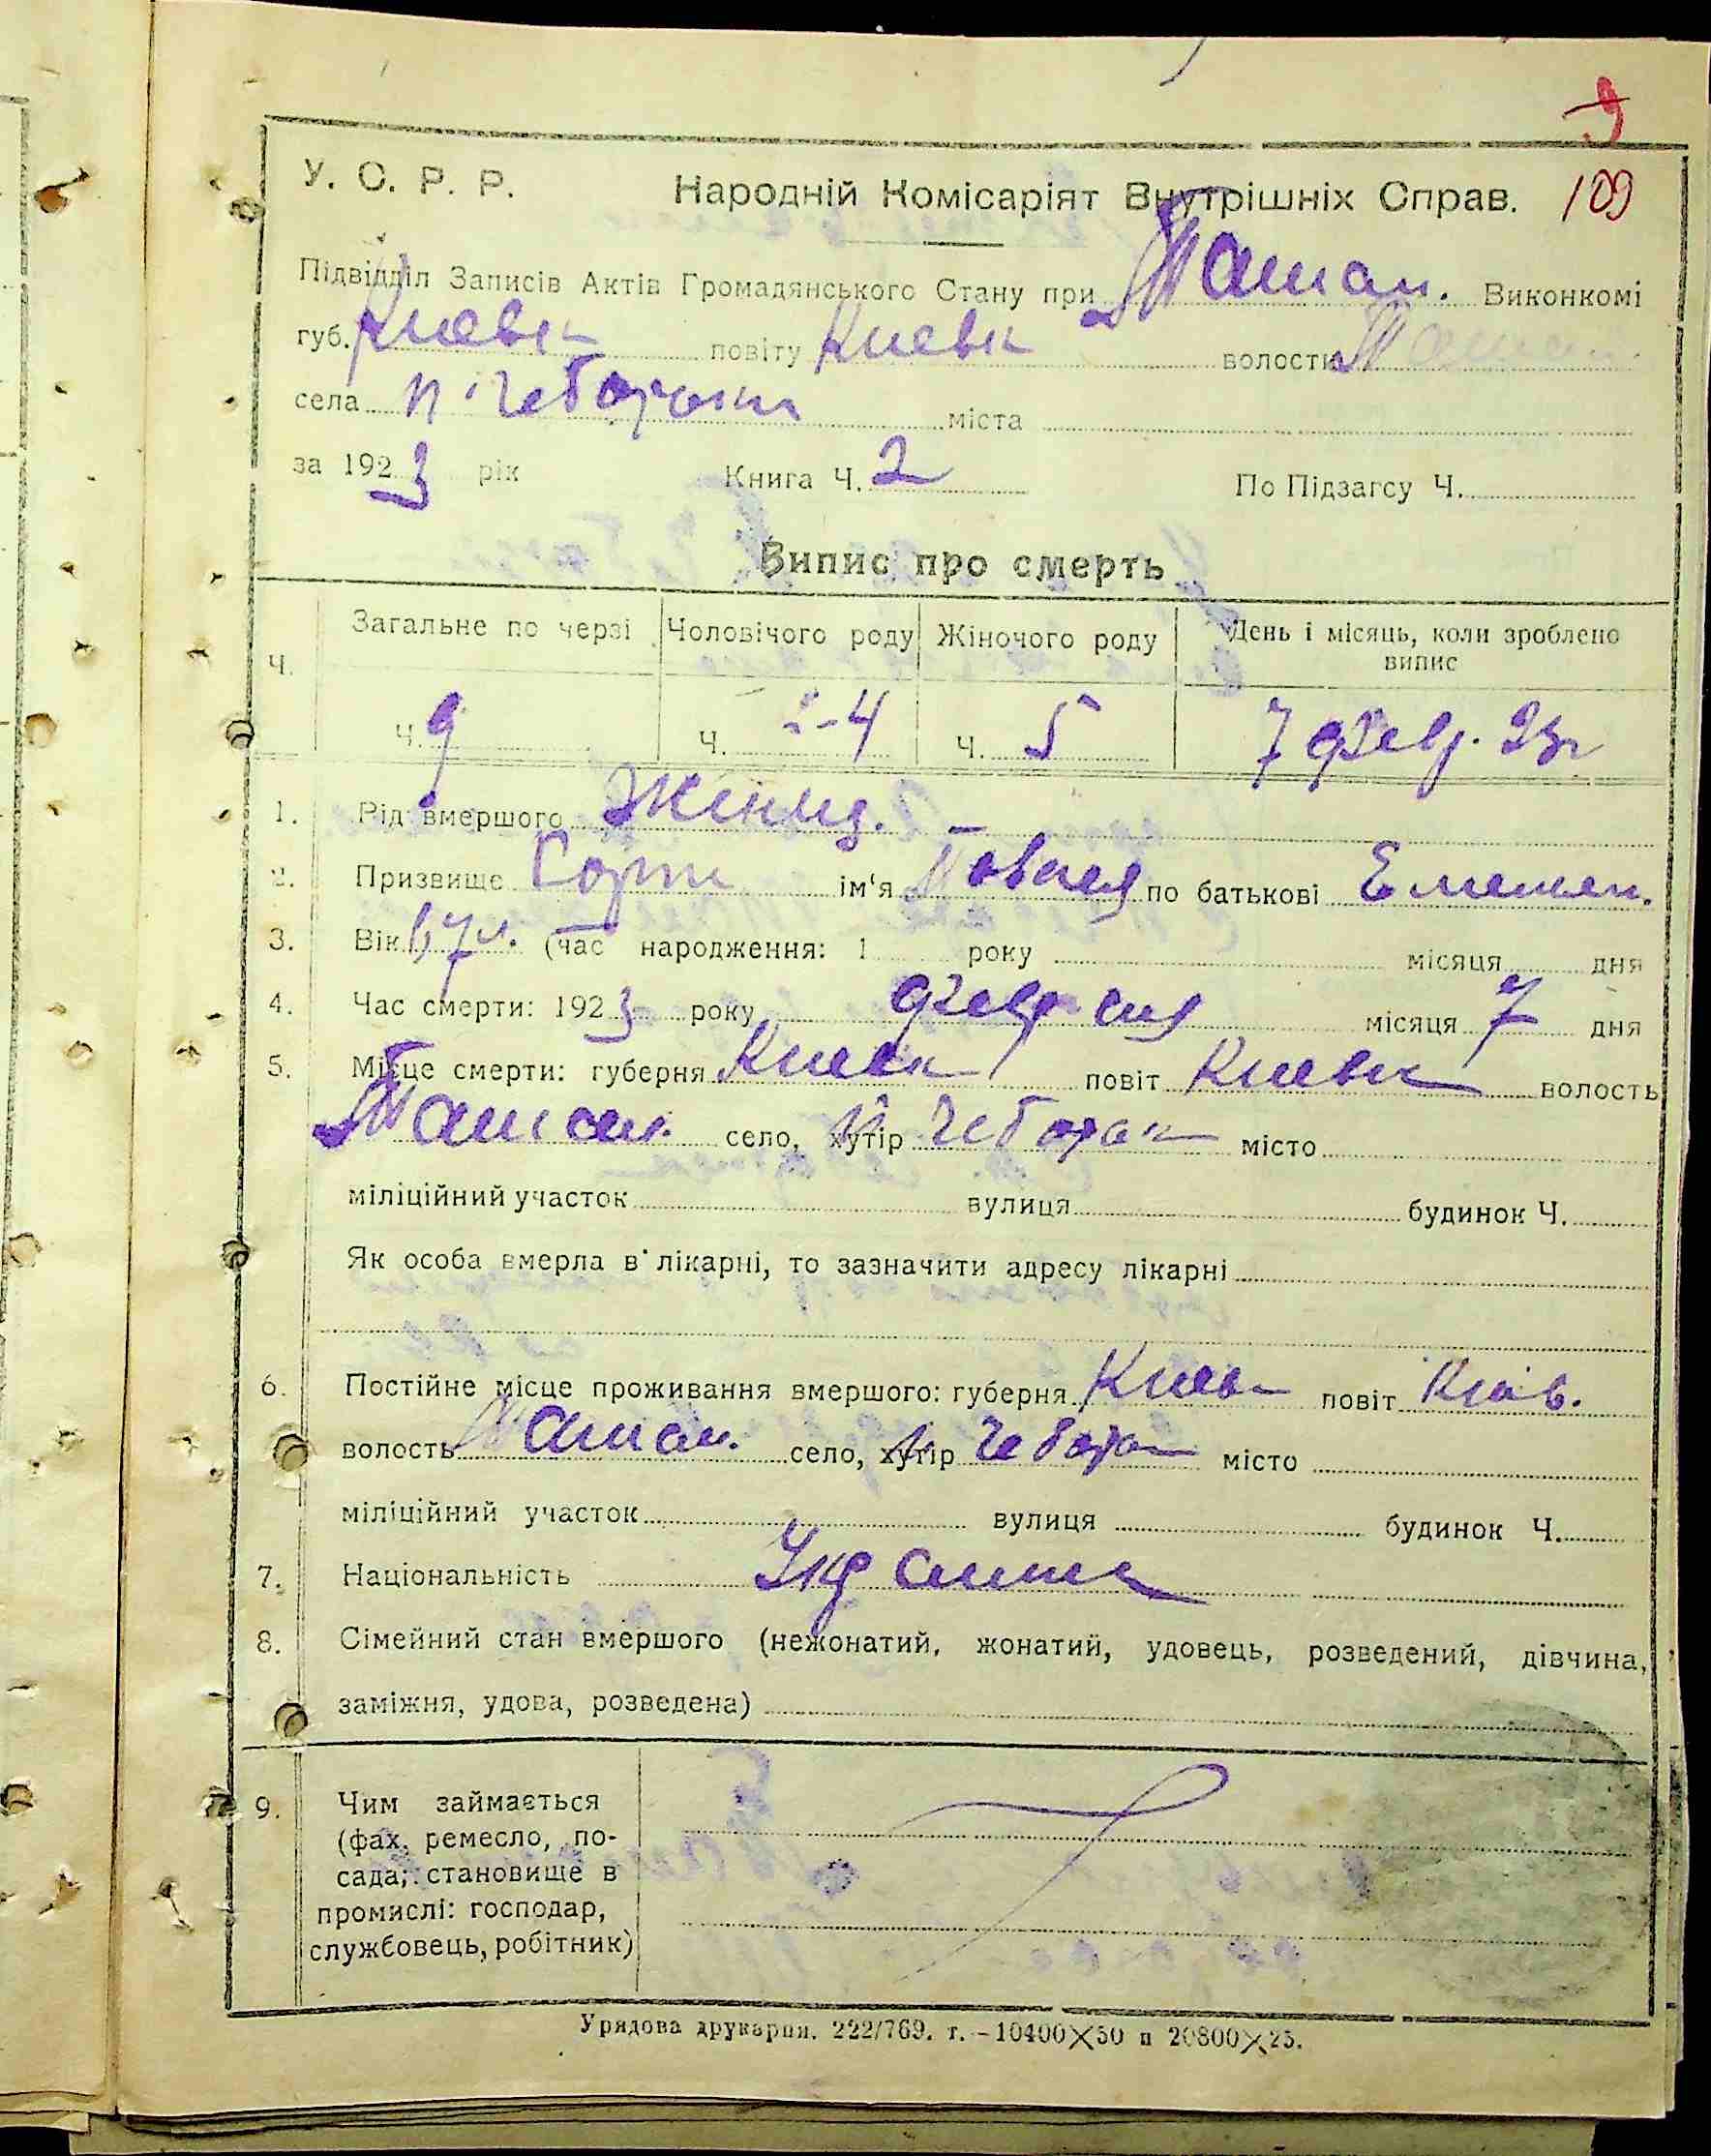 9
У. С. Р. Р. Народній Комісаріят Внутрішніх Справ. 109
Підвідділ Записів Актів Громадянського Стану при Ташан. Виконкомі
губ. Киевк повіту Киевк волости Ташан
села п. Чеборски міста
за 1923 рік Книга Ч. 2 По Підзагсу Ч.
Випис про смерть
Ч. Загальне по черзі Чоловічого роду Жіночого роду День і місяць, коли зроблено випис
Ч. 9 Ч. 4 Ч. 5 7 февр. 23г
1. Рід вмершого Женщ. –
2. Призвище ім'я по батькові Емельян.
3. Вік 67 л. (час народження: 1 року місяця дня
4. Час смерти: 1923 року февраля місяця 7 дня
5. Місце смерти: губерня Киевк повіт Киевк волость
Ташан. село, хутір місто
міліційний участок вулиця будинок Ч.
Як особа вмерла в лікарні, то зазначити адресу лікарні
6. Постійне місце проживання вмершого: губерня Киев повіт Киів.
волость Ташан. село, хутір місто
міліційний участок вулиця будинок Ч.
7. Національність
8. Сімейний стан вмершого (нежонатий, жонатий, удовець, розведений, дівчина,
заміжня, удова, розведена)
9. Чим займається
(фах, ремесло, по-
сада; становище в
промислі: господар,
службовець, робітник)
Урядова друкарня. 222/769. т. – 10400×50 п 20800×25.